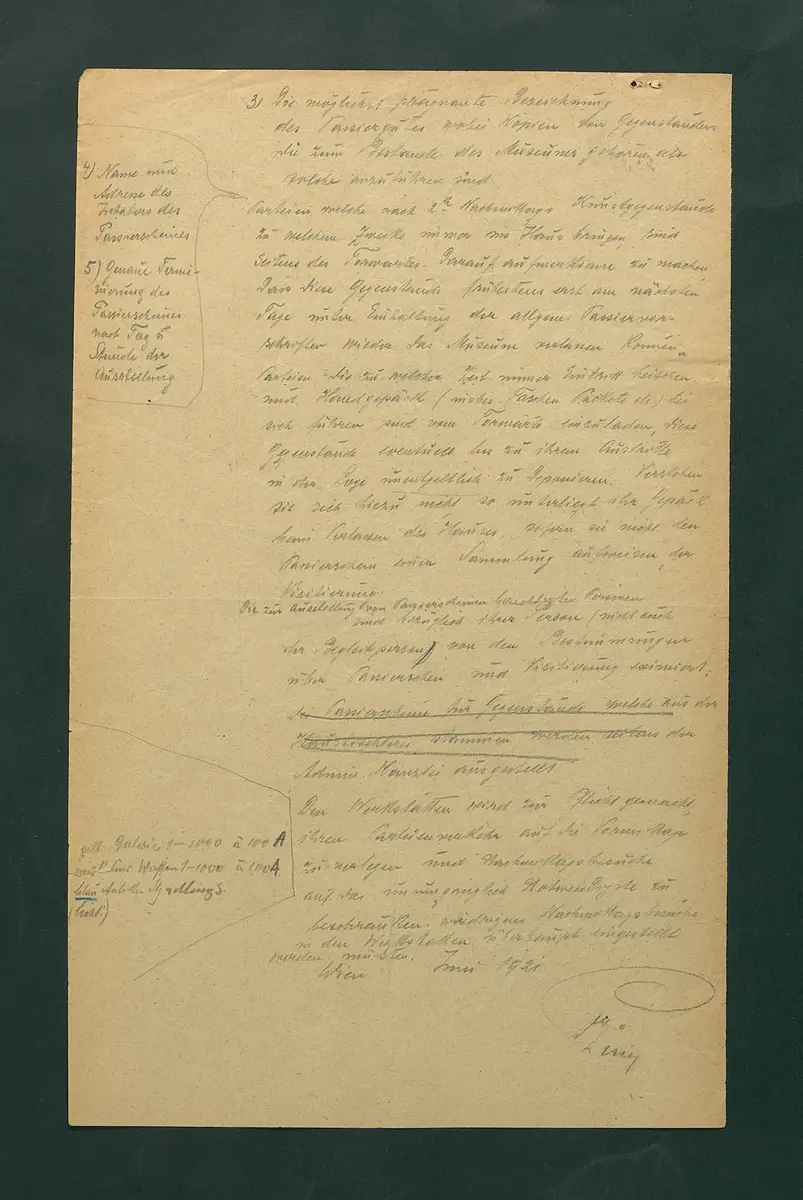 3) Die möglichst prägnante Bezeichnung
des Passiergutes wobei Kopien von Gegenständen
die zum Bestande des Museums gehören als
solche anzuführen sind.
4) Name und
Adresse des
Inhabers des
Passierscheines
5) Genaue Termi-
nierung des
Passierscheines
nach Tag u
Stunde der
Ausstellung
Parteien welche nach 2 Nachmittags Kunstgegenstände
zu welchem Zwecke immer ins Haus bringen, sind
seitens des Torwartes darauf aufmerksam zu machen
dass diese Gegenstände frühestens erst am nächsten
Tage unter Einhaltung der allgem. Passiervor-
schriften wieder das Museum verlassen können.
Parteien die zu welcher Zeit immer Eintritt heischen
und Handgepäck (Taschen Packete etc) bei
sich führen sind vom Torwarte einzuladen, diese
Gegenstände eventuell bis zu ihrem Austritte
in der Loge unentgeltlich zu deponieren. Verstehen
sie sich hiezu nicht so unterliegt ihr Gepäck
beim Verlassen des Hauses, sofern sie nicht den
Passierschein einer Sammlung aufweisen, der
Visitierung.
Die zur Ausstellung von Passierscheinen berechtigten Personen
sind bezüglich ihrer Person (nicht auch
ihr Begleitperson) von den Bestimmungen
über Passierschein und Visitierung eximiert.
die Passierscheine für Gegenstände welche aus der
Hausdirektorei stammen werden seitens der
Admin. Kanzlei ausgestellt
Den Werkstätten wird zur Pflicht gemacht,
ihren Parteienverkehr auf die Vormittage
zu verlegen und Nachmittagsbesuche
auf das unumgänglich Notwendigste zu
beschränken, widrigens Nachmittagsbesuche
in den Werkstätten überhaupt eingestellt
werden müssten.
Wien Juni 1921
gelb Galerie 1-1000 à 100 A
für Waffen 1-1000 à 100 A
blau